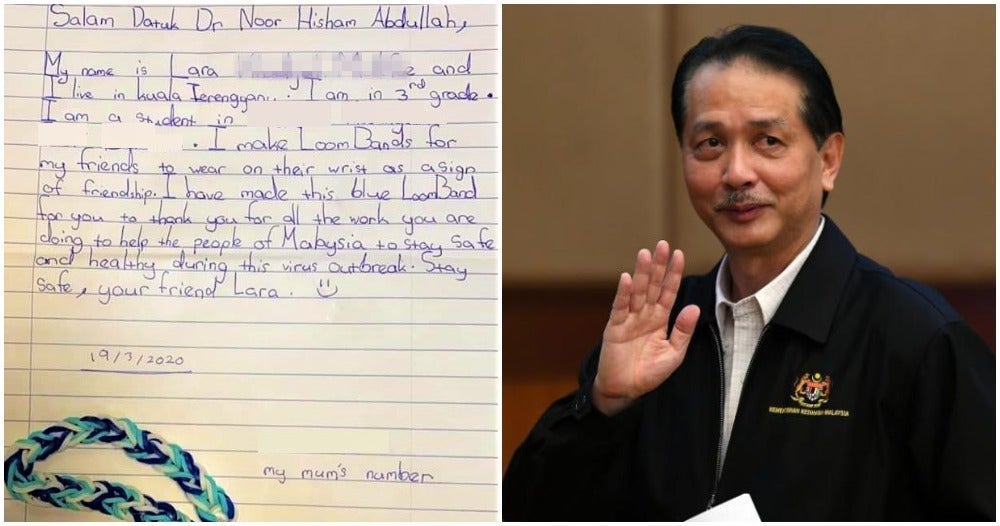 Salam Datuk Dr Noor Hisham Abdullah,
My name is Lara and
I live in Kuala Terengganu. I am in 3rd grade.
I am a student in
. I make LoomBands for
my friends to wear on their wrist as a sign
of friendship. I have made this blue LoomBand
for you to thank you for all the work you are
doing to help the people of Malaysia to stay safe
and healthy during this virus outbreak. Stay
safe, your friend Lara. ☺
19/3/2020
my mum's number
KEMENTERIAN KESIHATAN MALAYSIA